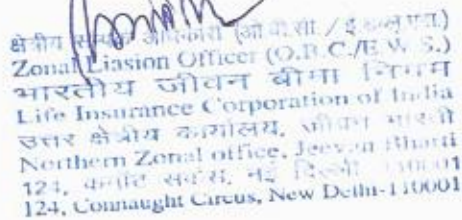 क्षेत्रीय संपर्क अधिकारी (ओ.बी.सी. / ई.डब्ल्यू.एस.)
Zonal Liasion Officer (O.B.C./E.W.S.)
भारतीय जीवन बीमा निगम
Life Insurance Corporation of India
उत्तर क्षेत्रीय कार्यालय, जीवन भारती
Northern Zonal office, Jeevan Bharti
124, कनॉट सर्कस, नई दिल्ली 110001
124, Connaught Circus, New Delhi-110001